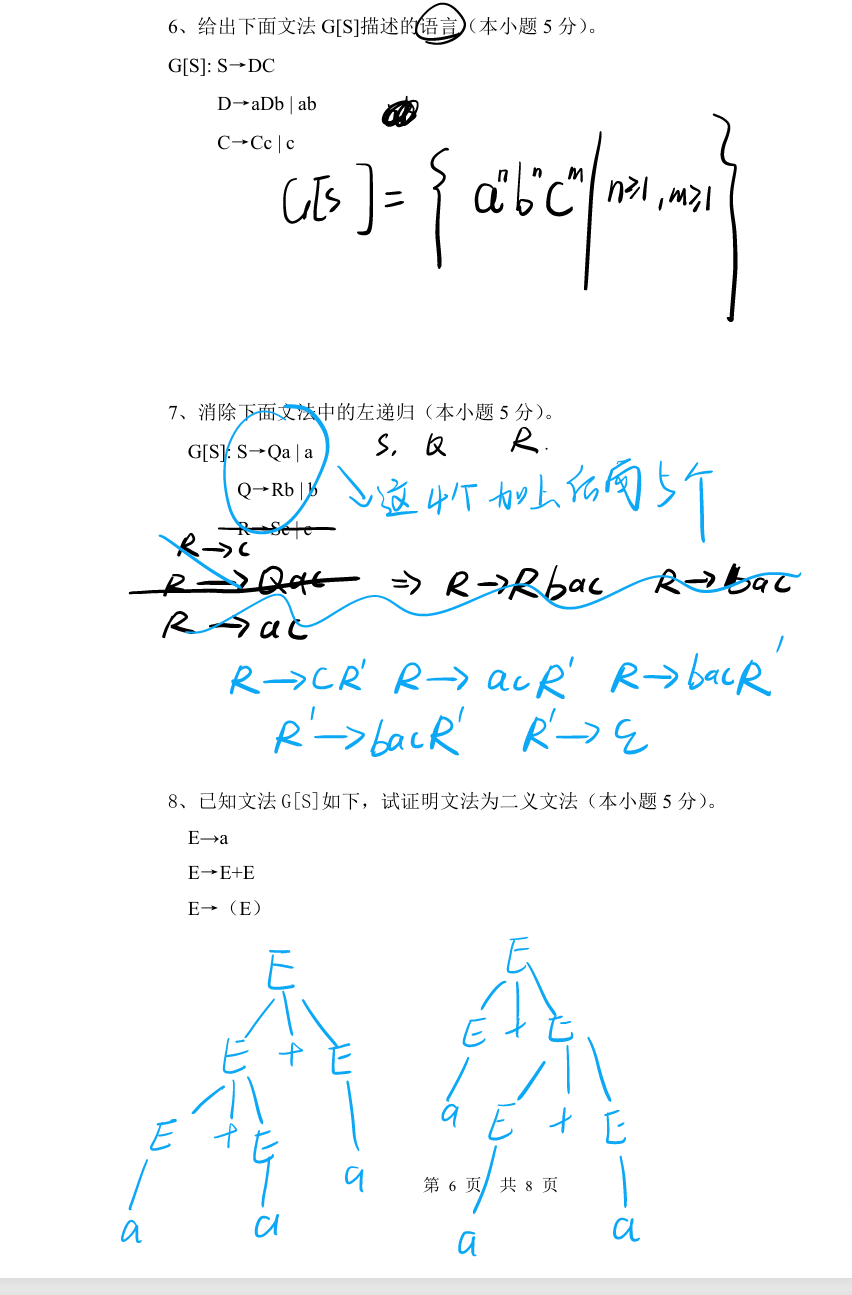 6、给出下面文法 G[S]描述的语言（本小题 5 分）。
G[S]: S→DC
D→aDb | ab
C→Cc | c
G[S]={ aⁿbⁿcᵐ | n≥1,m≥1 }
7、消除下面文法中的左递归（本小题 5 分）。
G[S]: S→Qa | a
S, Q R.
Q→Rb | b
这4个加上后面5个
R→Sc | c
R→c
R→Qac ⇒ R→Rbac R→bac
R→ac
R→cR' R→acR' R→bacR'
R'→bacR' R'→ε
8、已知文法 G[S]如下，试证明文法为二义文法（本小题 5 分）。
E→a
E→E+E
E→（E）
E E
E + E E + E
E + E a a E + E
第 6 页 共 8 页
a a a a